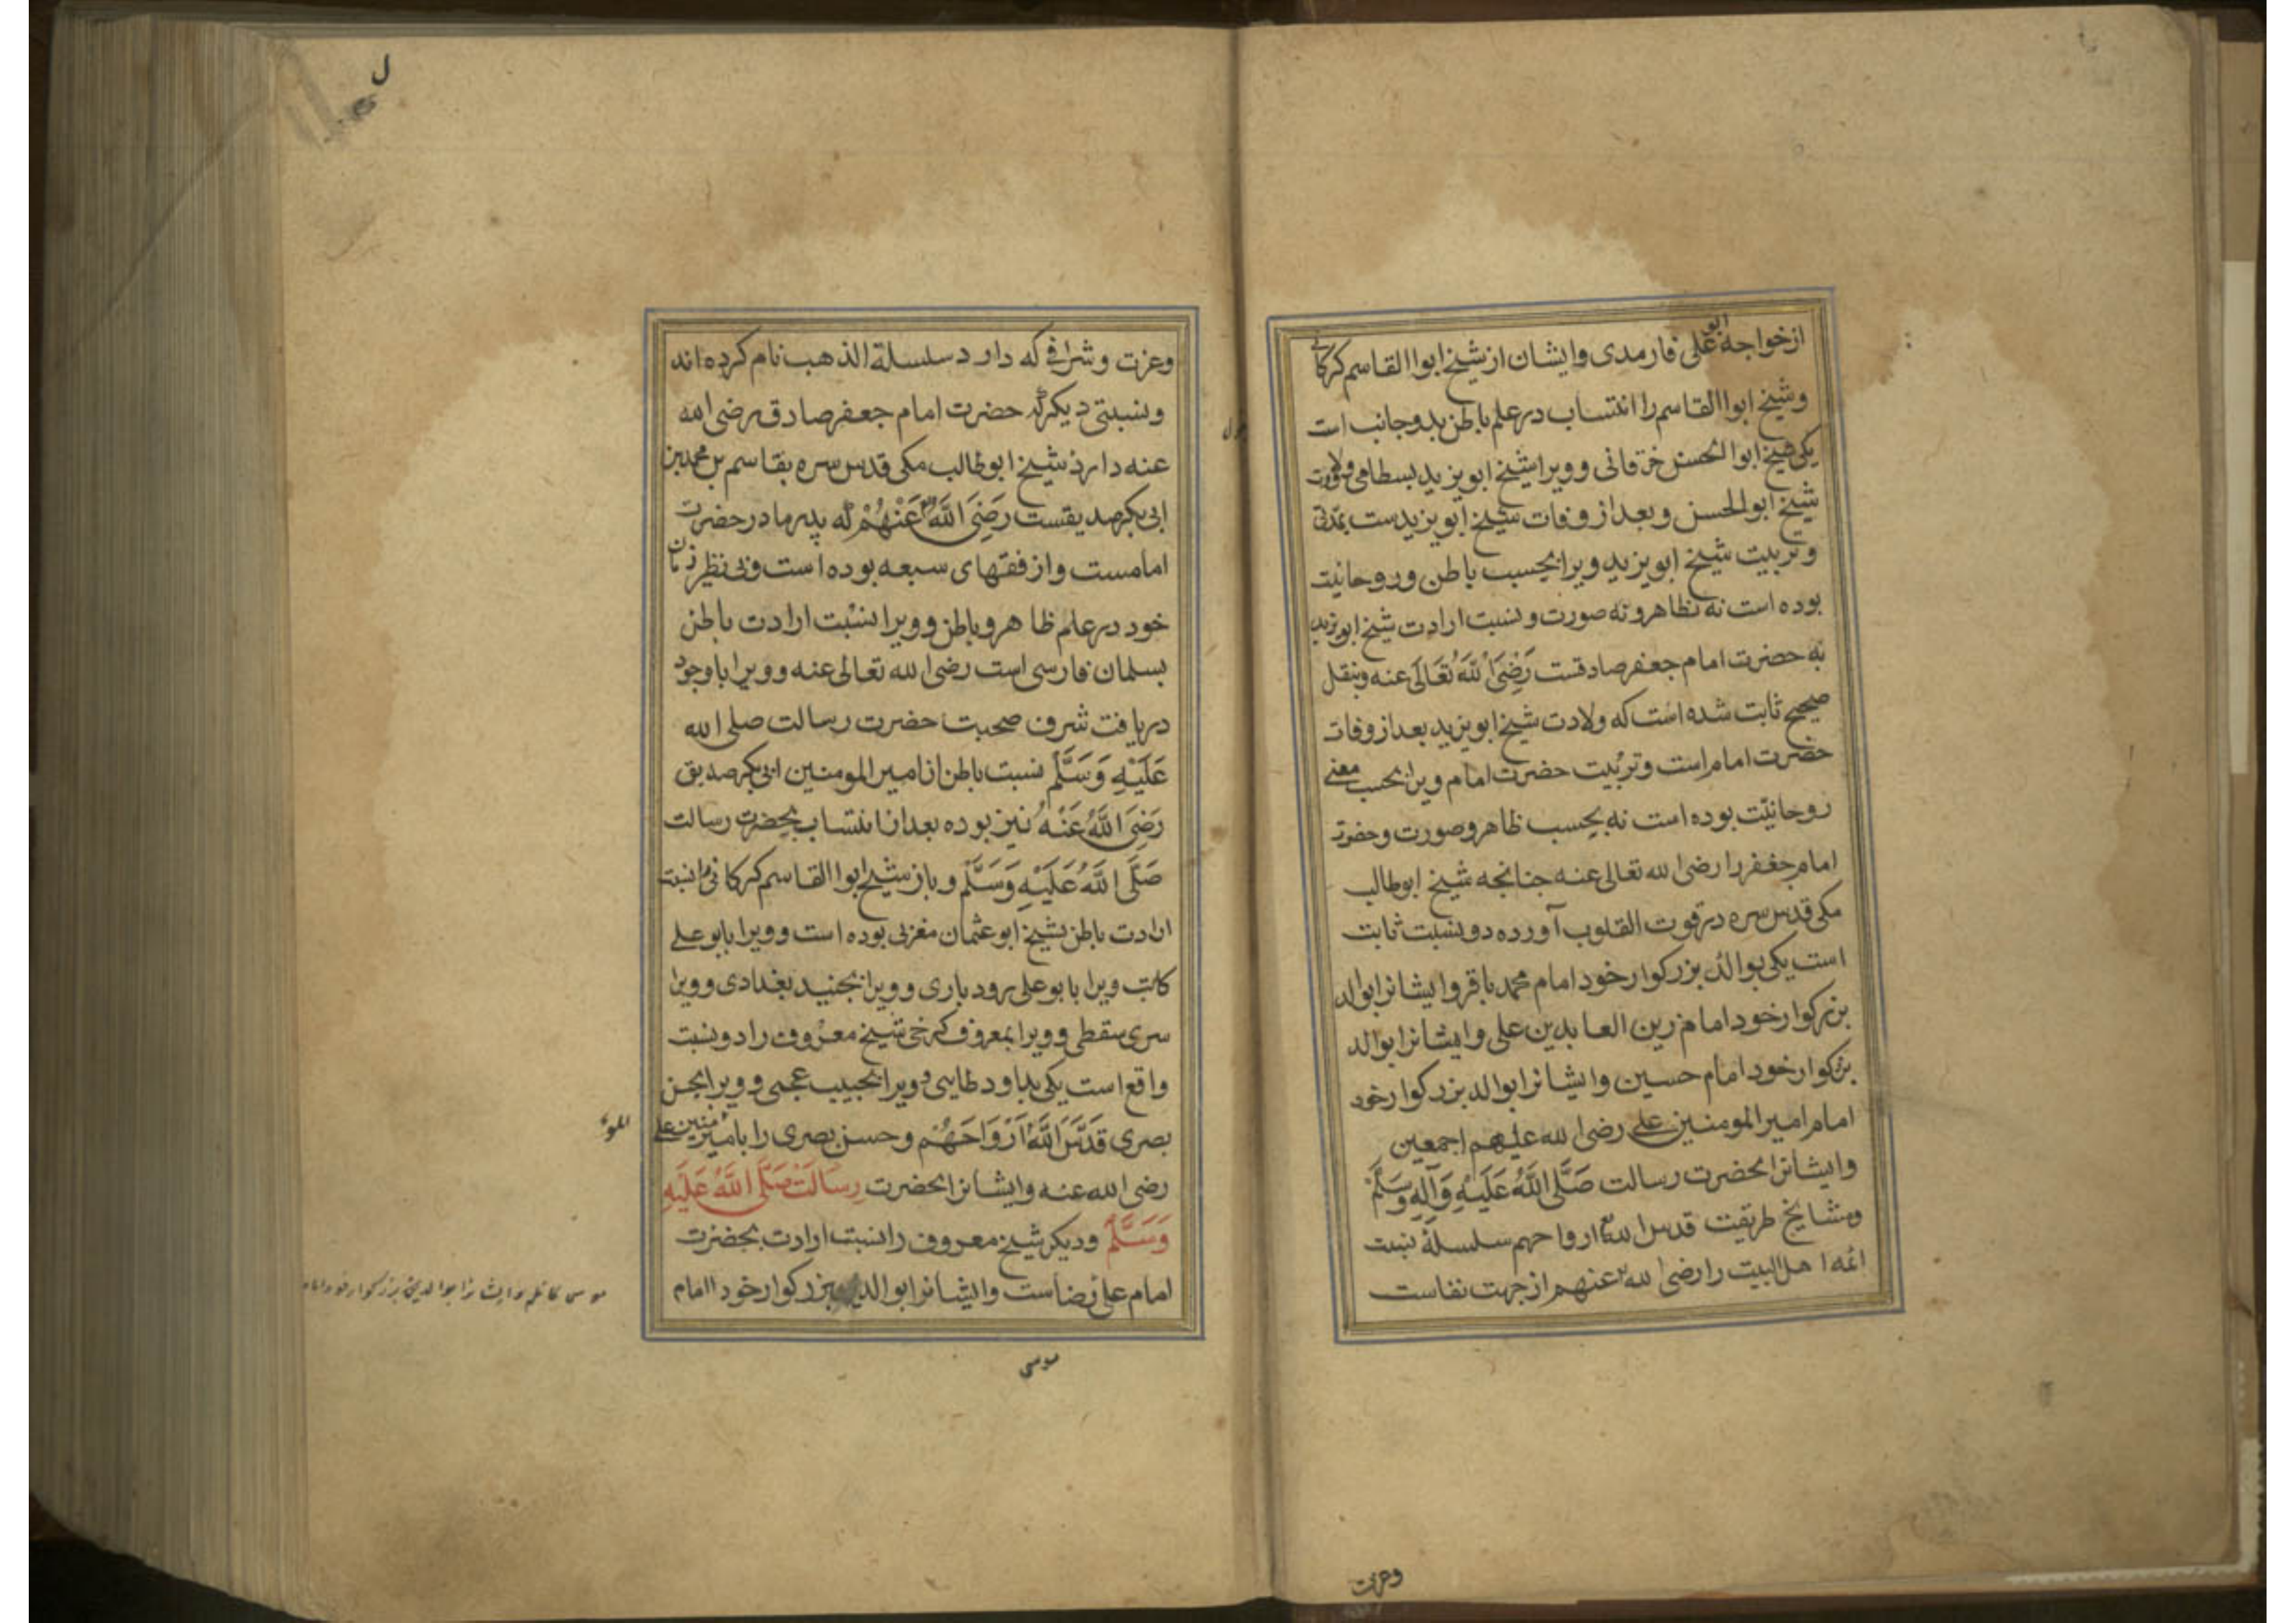 از خواجه ابو علی فارمدی وایشان از شیخ ابوا القاسم کرکانی
وشیخ ابوا القاسم را انتساب در علم باطن بدو جانب است
یکی شیخ ابوا الحسن خرقانی و ویرا شیخ ابو یزید بسطامی ولادت
شیخ ابوالحسن و بعد از وفات شیخ ابو یزیدست بمدتی
و تربیت شیخ ابو یزید ویرا بحسب باطن و روحانیت
بوده است نه بظاهر و نه صورت و نسبت ارادت شیخ ابو یزید
به حضرت امام جعفر صادقست رَضِیَ اللَّهُ تَعَالَی عنه وبنقل
صحیح ثابت شده است که ولادت شیخ ابو یزید بعد از وفات
حضرت امام است و تربیت حضرت امام ویرا بحسب معنی
روحانیّت بوده است نه بحسب ظاهر و صورت و حضرت
امام جعفر را رضی الله تعالی عنه جنانجه شیخ ابوطالب
مکی قدس سره در قوت القلوب آورده دو نسبت ثابت
است یکی بوالد بزرکوار خود امام محمد باقر وایشانرا بوالد
بزرکوار خود امام زین العابدین علی وایشانرا بوالد
بزرکوار خود امام حسین وایشانرا بوالد بزرکوار خود
امام امیر المومنین علی رضی الله علیهم اجمعین
وایشانرا بحضرت رسالت صَلَّی اللَّهُ عَلَیْهِ وَآلِهِ وَسَلَّمْ
ومشایخ طریقت قدس الله ارواحهم سلسلهٔ نسبت
ائمه اهل البیت را رضی الله عنهم از جهت نفاست
وعزت
ل
وعزت و شرافی که دارد سلسلة الذهب نام کرده اند
و نسبتی دیکر که حضرت امام جعفر صادق رضی الله
عنه دارد شیخ ابوطالب مکی قدس سره بقاسم بن محمد بن
ابی بکر صدیقست رَضِیَ اللَّهُ عَنْهُمْ که پدر مادر حضرت
امامست و از فقهای سبعه بوده است و بی نظیر زمان
خود در علم ظاهر و باطن و ویرا نسبت ارادت باطن
بسلمان فارسی است رضی الله تعالی عنه و ویرا باوجود
دریافت شرف صحبت حضرت رسالت صلی الله
عَلَیْهِ وَسَلَّمْ نسبت باطن از امیر المومنین ابی بکر صدیق
رَضِیَ اللَّهُ عَنْهُ نیز بوده بعد از انتساب بحضرت رسالت
صَلَّی اللَّهُ عَلَیْهِ وَسَلَّمْ و باز شیخ ابوا القاسم کرکانی را نسبت
ارادت باطن بشیخ ابو عثمان مغربی بوده است و ویرا بابو علی
کاتب ویرا بابو علی رودباری و ویرا بجنید بغدادی و ویرا
سری سقطی و ویرا بمعروف کرخی شیخ معروف را دو نسبت
واقع است یکی بداود طایی و ویرا بحبیب عجمی و ویرا بحسن
بصری قَدَّسَ اللَّهُ اَرْوَاحَهُمْ وحسن بصری را بامیر منین علی
المو
رضی الله عنه وایشانرا بحضرت رسالت صَلَّی اللَّهُ عَلَیْهِ
وَسَلَّمْ ودیکر شیخ معروف را نسبت ارادت بحضرت
امام علی رضاست وایشانرا بوالد بزرکوار خود اامام
موسی کاظم وایشانرا بوالد بزرکوار خود امام
موسی